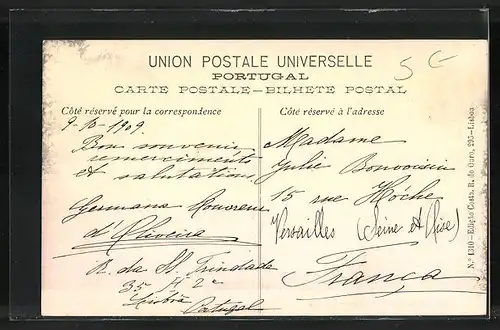 UNION POSTALE UNIVERSELLE
PORTUGAL
CARTE POSTALE—BILHETE POSTAL
Côté réservé pour la correspondence
9-10-1909.
Bon souvenir,
remerciments
et salutations.
Germana
d'Oliveira
R. da SS. Trindade
35
Portugal
Côté réservé à l'adresse
Madame
Julie Bonvoisin
15 rue Hóche
Versailles (Seine et Oise)
França
5 €
N.º 1310—Edição Costa, R. do Ouro, 295—Lisboa